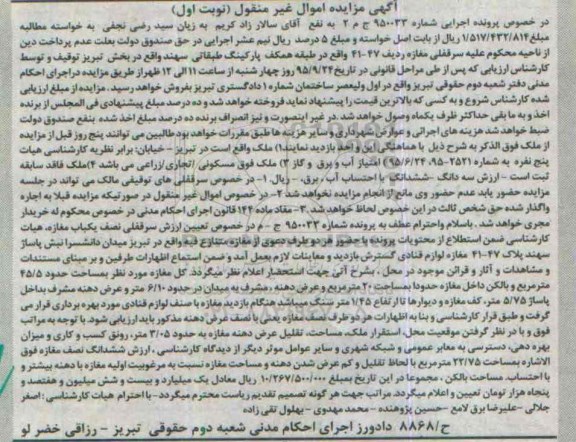 آگهی مزایده اموال غیر منقول (نوبت اول)
در خصوص پرونده اجرایی شماره ۹۵۰۰۳۳ ج م ۲ به نفع آقای سالار زاد کریم به زیان سید رضی نجفی به خواسته مطالبه
مبلغ ۱/۵۱۷/۴۳۲/۸۱۴ ریال از بابت اصل خواسته و مبلغ ۵ درصد ریال نیم عشر اجرایی در حق صندوق دولت بعلت عدم پرداخت دین
از ناحیه محکوم علیه سرقفلی مغازه ردیف ۴۷-۴۱ واقع در طبقه همکف پارکینگ طبقاتی سهند واقع در بخش تبریز توقیف و توسط
کارشناس ارزیابی که پس از طی مراحل قانونی در تاریخ ۹۵/۹/۲۴ روز چهار شنبه از ساعت ۱۱ الی ۱۲ ظهر از طریق مزایده در اجرای احکام
مدنی دفتر شعبه دوم حقوقی تبریز واقع در اول ولیعصر ساختمان شماره ۱ دادگستری تبریز بفروش خواهد رسید . مزایده از مبلغ ارزیابی
شده کارشناس شروع و به کسی که بالاترین قیمت را پیشنهاد نماید فروخته خواهد شد و ده درصد مبلغ پیشنهادی فی المجلس از برنده
اخذ و به مابقی حداکثر ظرف یکماه وصول خواهد شد. در غیر اینصورت و نیز انصراف برنده ده درصد مبلغ اخذ شده بنفع صندوق دولت
ضبط خواهد شد هزینه های اجرائی و عوارض شهرداری و سایر هزینه ها طبق مقررات خواهد بود طالبین می توانند پنج روز قبل از مزایده
از ملک فوق الذکر به شرح ذیل با هماهنگی این واحد بازدید نمایند ۱) ملک واقع است در تبریز - خیابان: برابر نظریه کارشناسی هیات
پنج نفره به شماره (۲۵۲۱-۹۵، ۹۵/۶/۲۴) امتیاز آب و برق و گاز ۳) ملک فوق مسکونی /تجاری/زراعی می باشد ۴)ملک فاقد سابقه
ثبت است - ارزش سه دانگ -ششدانگ با احتساب آب ، برق، - ریال. ۱- در خصوص سرقفلی های توقیفی مالک می تواند در جلسه
مزایده حضور یابد عدم حضور وی مانع از انجام مزایده نخواهد شد ۲- در خصوص اموال غیر منقول در صورتیکه مزایده قبلا به اجاره
واگذار شده حق شخص ثالث در این خصوص لحاظ خواهد شد. ۳- مفاد ماده ۱۴۴ قانون اجرای احکام مدنی در خصوص محکوم له خریدار
مجری خواهد شد. باسلام واحترام عطف به پرونده شماره ۹۵۰۰۳۳ ج - م در خصوص تعیین ارزش سرقفلی نصف یکباب مغازه، هیات
کارشناسی ضمن استطلاع از محتویات پرونده با حضور هر دو طرف دعوی از مغازه متنازع فیه واقع در تبریز میدان دانشسرا نبش پاساژ
سهند پلاک ۴۷-۴۱ مغازه لوازم قنادی گسترش بازدید و معاینات لازم بعمل آمد و ضمن استماع اظهارات طرفین و بر مبنای مستندات
و مشاهدات و آثار و قرائن موجود در محل ، بشرح آتی جهت استحضار اعلام نظر میگردد. کل مغازه مورد نظر بمساحت حدود ۴۵/۵
مترمربع و بالکن داخل مغازه حدودا بمساحت ۲۰ مترمربع و عرض دهنه ، مشرف به میدان در حدود ۶/۱۰ متر و عرض دهنه مشرف بداخل
پاساژ ۵/۷۵ متر، کف مغازه و دیوارها تا ارتفاع ۱/۴۵ متر سنگ میباشد هنگام بازدید مغازه با صنف لوازم قنادی مورد بهره برداری قرار می
گرفت و طبق قرار کارشناسی و بنا به اظهارات هر دو طرف نصف مغازه یعنی با نصف عرض دهنه مذکور باید ارزیابی شود. با توجه به مراتب
فوق و با در نظر گرفتن موقعیت محل، استقرار ملک، مساحت، تقلیل عرض دهنه مغازه به حدود ۳/۰۵ متر، رونق کسب و کاری و میزان
بهره دهی، دسترسی به معابر عمومی و شبکه شهری و سایر عوامل موثر دیگر از دیدگاه کارشناسی ، ارزش ششدانگ نصف مغازه فوق
الاشاره بمساحت ۲۲/۷۵ مترمربع با لحاظ تقلیل و کم عرض شدن دهنه و مساحت مغازه نسبت به مرغوبیت اولیه مغازه با دهنه بیشتر و
با احتساب مساحت بالکن ، مجموعا در این تاریخ بمبلغ ۱۰/۲۶۷/۵۰۰/۰۰۰ ریال معادل یک میلیارد و بیست و شش میلیون و هفتصد و
پنجاه هزار تومان تعیین و اعلام میگردد. مراتب جهت هر گونه تصمیم تقدیم ریاست محترم میگردد- با احترام هیات کارشناسی :اصغر
جلالی -علیرضا برق لامع -حسین پژوهنده - محمد مهدوی - بهلول تقی زاده
ح/۸۸۶۸ دادورز اجرای احکام مدنی شعبه دوم حقوقی تبریز - رزاقی خضر لو